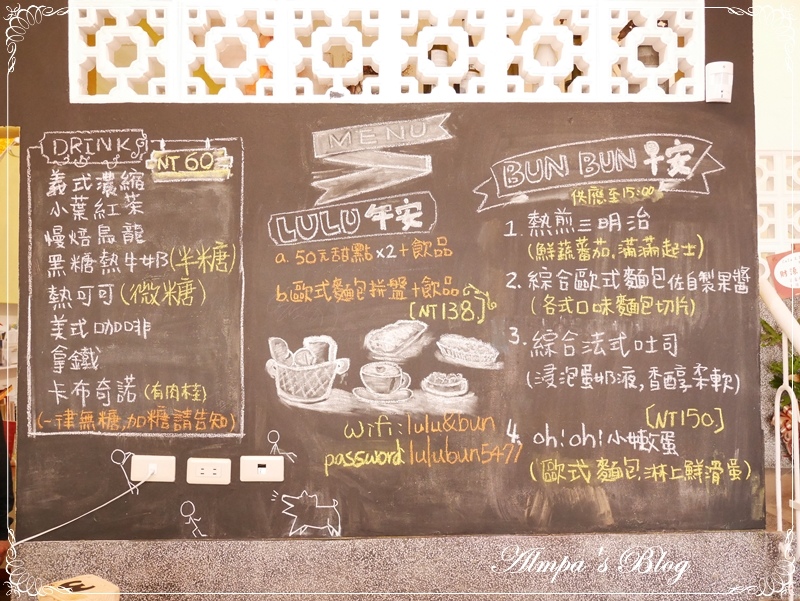 DRINK
NT 60
義式濃縮
小葉紅茶
慢焙烏龍
黑糖熱牛奶(半糖)
熱可可(微糖)
美式咖啡
拿鐵
卡布奇諾(有肉桂)
(一律無糖,加糖請告知)
MENU
LULU 午安
a. 50元甜點x2+飲品
b.歐式麵包拼盤+飲品
[NT138.]
wifi:lulu&bun
password:lulubun5477
BUN BUN 早安
供應至15:00
1. 熱煎三明治
(鮮蔬蕃茄.滿滿起士)
2. 綜合歐式麵包佐自製果醬
(各式口味麵包切片)
3. 綜合法式吐司
(浸泡蛋奶液,香醇柔軟)
[NT150]
4. oh!oh!小嫩蛋
(歐式麵包.淋上鮮滑蛋)
Almpa's Blog